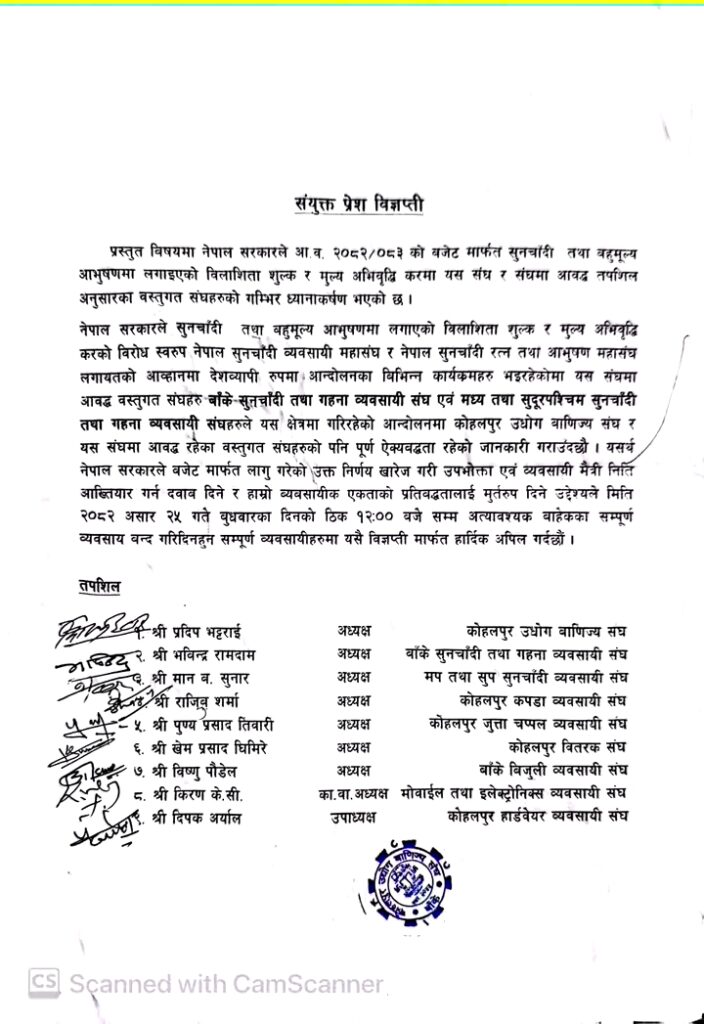 संयुक्त प्रेश विज्ञप्ती
प्रस्तुत विषयमा नेपाल सरकारले आ.व. २०८२/०८३ को बजेट मार्फत सुनचाँदी तथा बहुमूल्य
आभुषणमा लगाइएको विलाशिता शुल्क र मुल्य अभिवृद्धि करमा यस संघ र संघमा आवद्ध तपशिल
अनुसारका वस्तुगत संघहरुको गम्भिर ध्यानाकर्षण भएको छ ।
नेपाल सरकारले सुनचाँदी तथा बहुमुल्य आभुषणमा लगाएको विलाशिता शुल्क र मुल्य अभिवृद्धि
करको विरोध स्वरुप नेपाल सुनचाँदी व्यवसायी महासंघ र नेपाल सुनचाँदी रत्न तथा आभुषण महासंघ
लगायतको आव्हानमा देशव्यापी रुपमा आन्दोलनका विभिन्न कार्यकमहरु भइरहेकोमा यस संघमा
आवद्ध वस्तुगत संघहरु बाँके सुनचाँदी तथा गहना व्यवसायी संघ एवं मध्य तथा सुदूरपश्चिम सुनचाँदी
तथा गहना व्यवसायी संघहरुले यस क्षेत्रमा गरिरहेको आन्दोलनमा कोहलपुर उधोग बाणिज्य संघ र
यस संघमा आवद्ध रहेका वस्तुगत संघहरुको पनि पूर्ण ऐक्यवद्धता रहेको जानकारी गराउंदछौ । यसर्थ
नेपाल सरकारले बजेट मार्फत लागु गरेको उक्त निर्णय खारेज गरी उपभोक्ता एवं व्यवसायी मैत्री निति
आख्तियार गर्न दवाव दिने र हाम्रो व्यवसायीक एकताको प्रतिबद्धतालाई मुर्तरुप दिने उद्देश्यले मिति
२०८२ असार २५ गते बुधवारका दिनको ठिक १२:०० बजे सम्म अत्यावश्यक बाहेकका सम्पूर्ण
व्यवसाय बन्द गरिदिनहुन सम्पूर्ण व्यवसायीहरुमा यसै विज्ञप्ती मार्फत हार्दिक अपिल गर्दछौं ।
तपशिल
१. श्री प्रदिप भट्टराई अध्यक्ष कोहलपुर उधोग बाणिज्य संघ
२. श्री भविन्द्र रामदाम अध्यक्ष बाँके सुनचाँदी तथा गहना व्यवसायी संघ
३. श्री मान ब. सुनार अध्यक्ष मप तथा सुप सुनचाँदी व्यवसायी संघ
श्री राजिव शर्मा अध्यक्ष कोहलपुर कपडा व्यवसायी संघ
५. श्री पुण्य प्रसाद तिवारी अध्यक्ष कोहलपुर जुत्ता चप्पल व्यवसायी संघ
६. श्री खेम प्रसाद घिमिरे अध्यक्ष कोहलपुर वितरक संघ
७. श्री विष्णु पौडेल अध्यक्ष बाँके बिजुली व्यवसायी संघ
८. श्री किरण के.सी. का.वा.अध्यक्ष मोवाईल तथा इलेक्ट्रोनिक्स व्यवसायी संघ
९. श्री दिपक अर्याल उपाध्यक्ष कोहलपुर हार्डवेयर व्यवसायी संघ
कोहलपुर उद्योग बाणिज्य संघ
CS Scanned with CamScanner